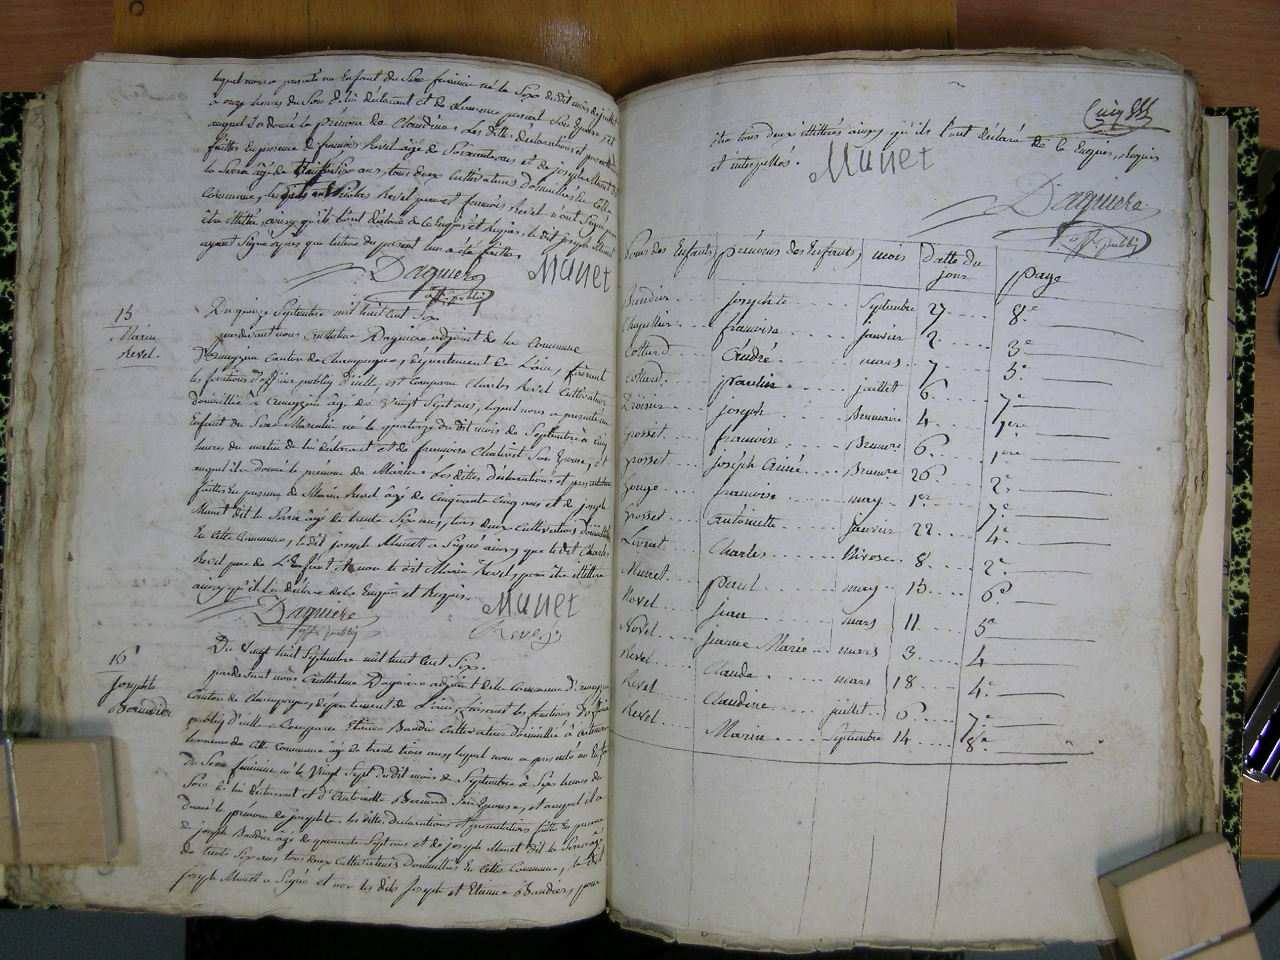 lequel nous a présenté un Enfant du Sexe féminin né le Six du dit mois de juillet
a onze heures du Soir de lui déclarant et de Laurence Son Epouse, et
auquel Ia donné le prénom de Claudine. Les dittes déclarations et présentation
faittes En présence de françois Revel agé de Soixante ans et de joseph Munet dit
le Soria âgé de trente Six ans, tous deux Cultivateurs domiciliés En Cette
Commune, Revel pere et françois Revel n'ont Signé pour
être illitérés, ainsy qu'ils l'ont déclaré de Ce Enquis et Requis, le dit joseph Munet
ayant Signé après que lecture du présent leur a été faitte.
Daguiere Munet
off. public
15
Marin
Revel.
Du quinze Septembre mil huit cent Six
pardevant nous Anthelme Daguiere adjoint de la Commune
d'ameyzieu Canton de Champagne, département de L'ain, faisant
les fonctions d'officier public d'icelle, est Comparu Charles Revel Cultivateur
domicilié à ameyzieu âgé de Vingt Sept ans, lequel nous a présenté un
Enfant du Sexe Masculin né le quatorze du dit mois de Septembre à Cinq
heures du matin de lui déclarant et de françoise Son Epouse, et
auquel il a donné le prénom de Marin. Les dittes déclarations et présentation
faittes En présence de Marin Revel âgé de Cinquante Cinq ans et de joseph
Munet dit le Soria âgé de trente Six ans, tous deux Cultivateurs domiciliés
En Cette Commune, le dit joseph Munet a Signé ainsy que le dit Charles
Revel pere de L'Enfant et non le dit Marin Revel, pour être illitéré
ainsy qu'il l'a déclaré de Ce Enquis et Requis.
Daguiere Munet
off. public Revel
16
josephte
Baudin
Du Vingt huit Septembre mil huit Cent Six.
pardevant nous Anthelme Daguiere adjoint de la Commune d'ameyzieu
Canton de Champagne, département de L'ain, faisant les fonctions d'officier
public d'icelle Comparu Etienne Baudin Cultivateur domicilié à
de Cette Commune agé de trente trois ans, lequel nous a présenté un Enfant
du Sexe féminin né le Vingt Sept du dit mois de Septembre à Six heures du
Soir de lui déclarant et d'Antoinette Son Epouse, et auquel il a
donné le prénom de josephte. les dittes déclarations et présentations faittes En présence
de joseph Baudin âgé de quarante Sept ans et de joseph Munet dit le Soria âgé
de trente Six ans tous deux Cultivateurs domiciliés En Cette Commune, le dit
joseph Munet a Signé et non les dits joseph et Etienne Baudin, pour
être tous deux illitérés ainsy qu'ils l'ont déclaré de Ce Enquis, requis
et interpellés. Munet
Daguiere
off. public
Noms des Enfants prénoms des Enfants mois datte du jour page
Baudin josephte Septembre 27 8.e
françoise janvier 2 3.e
Collard André mars 7 5.e
Collard pauline juillet 6 7.e
joseph Brumaire 4 1.ere
Gosset françoise Brumre 6 1.ere
Gosset joseph Aimé Brumre 26 2.e
françoise may 1.er 7.e
Gosset Antoinette janvier 22 4.e
Livret Charles Nivose 8 2.e
Munet paul may 15 6.e
Novel jean mars 11 5.e
Novel jeanne Marie mars 3 4
Revel Claude mars 18 4.e
Revel Claudine juillet 6 7.e
Revel Marin Septembre 14 8.e